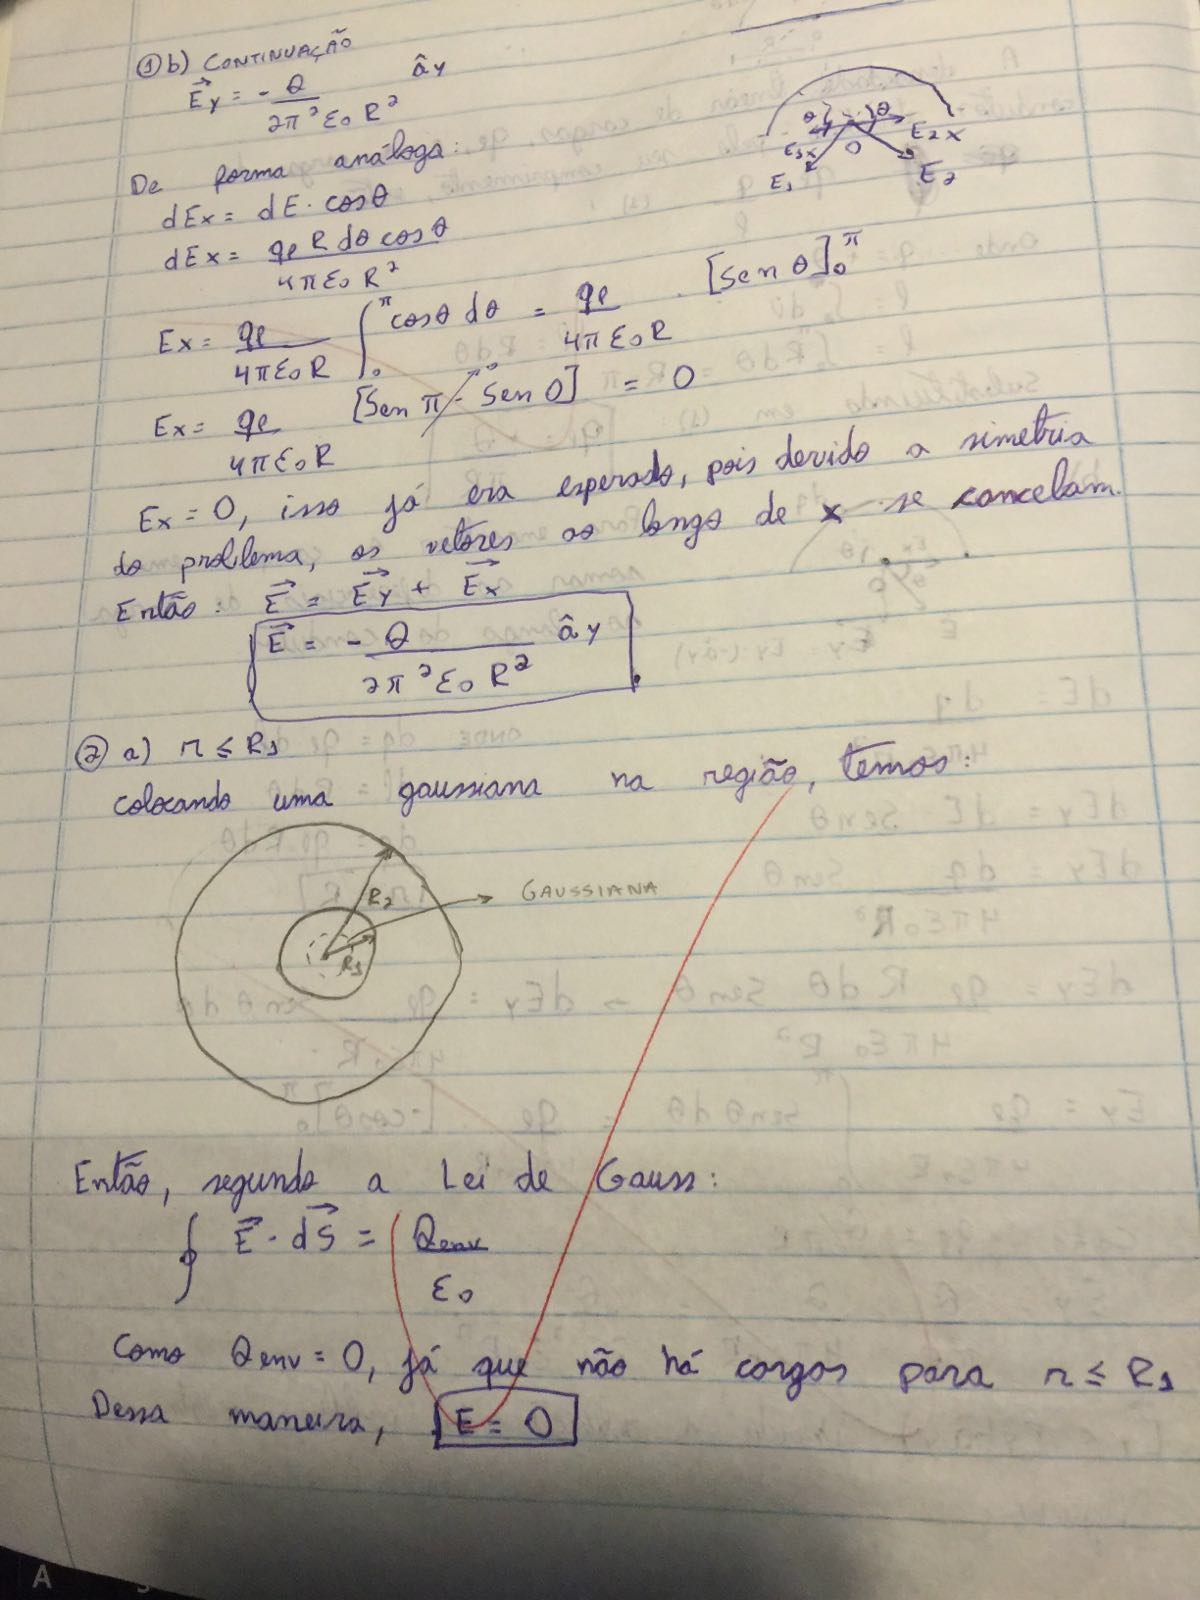 ① b) CONTINUAÇÃO
E⃗y = - Q / 2π²ε₀R² ây
De forma análoga:
dEx = dE · cosθ
dEx = qℓ R dθ cosθ / 4πε₀R²
Ex = qℓ / 4πε₀R ∫₀^π cosθ dθ = qℓ / 4πε₀R · [sen θ]₀^π
Ex = qℓ / 4πε₀R [Sen π - Sen 0] = 0
Ex = 0, isso já era esperado, pois devido a simetria
do problema, os vetores ao longo de x se cancelam.
Então: E⃗ = E⃗y + E⃗x
E⃗ = - Q / 2π²ε₀R² ây
θ θ
E1x O E2x
E1 E2
② a) r ≤ R1
colocando uma gaussiana na região, temos:
R2 GAUSSIANA
R1
Então, segundo a Lei de Gauss:
∮ E⃗ · dS⃗ = Qenv / ε₀
Como Qenv = 0, já que não há cargas para r ≤ R1
Dessa maneira, E = 0
A